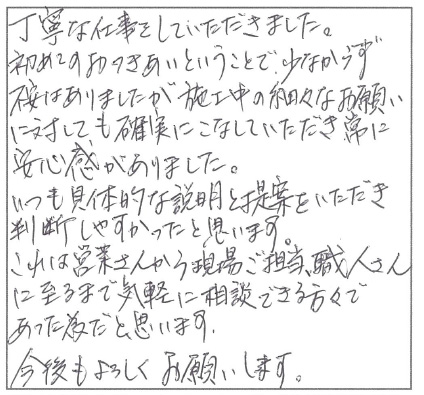 丁寧な仕事をしていただきました。
初めてのおつきあいということで、少なからず
不安はありましたが施工中の細々なお願い
に対しても確実にこなしていただき常に
安心感がありました。
いつも具体的な説明と提案をいただき
判断しやすかったと思います。
これは営業さんから現場ご担当、職人さん
に至るまで気軽に相談できる方々で
あった為だと思います。
今後もよろしくお願いします。